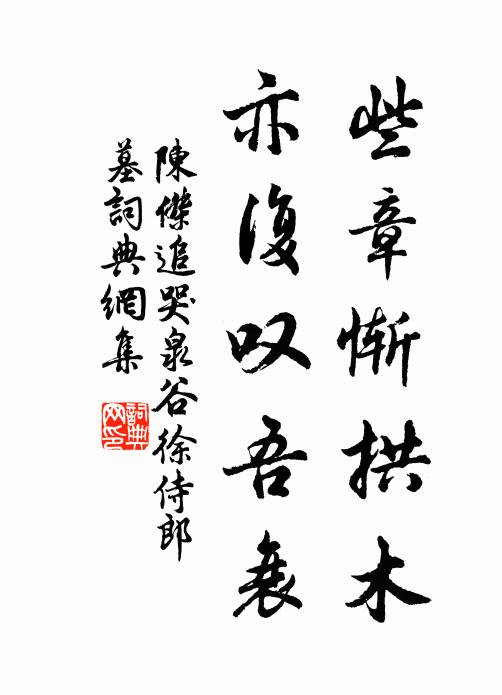 些章惭拱木
亦復叹吾衰
陳傑追哭泉谷徐侍郎
墓詞典網集
詞典網印